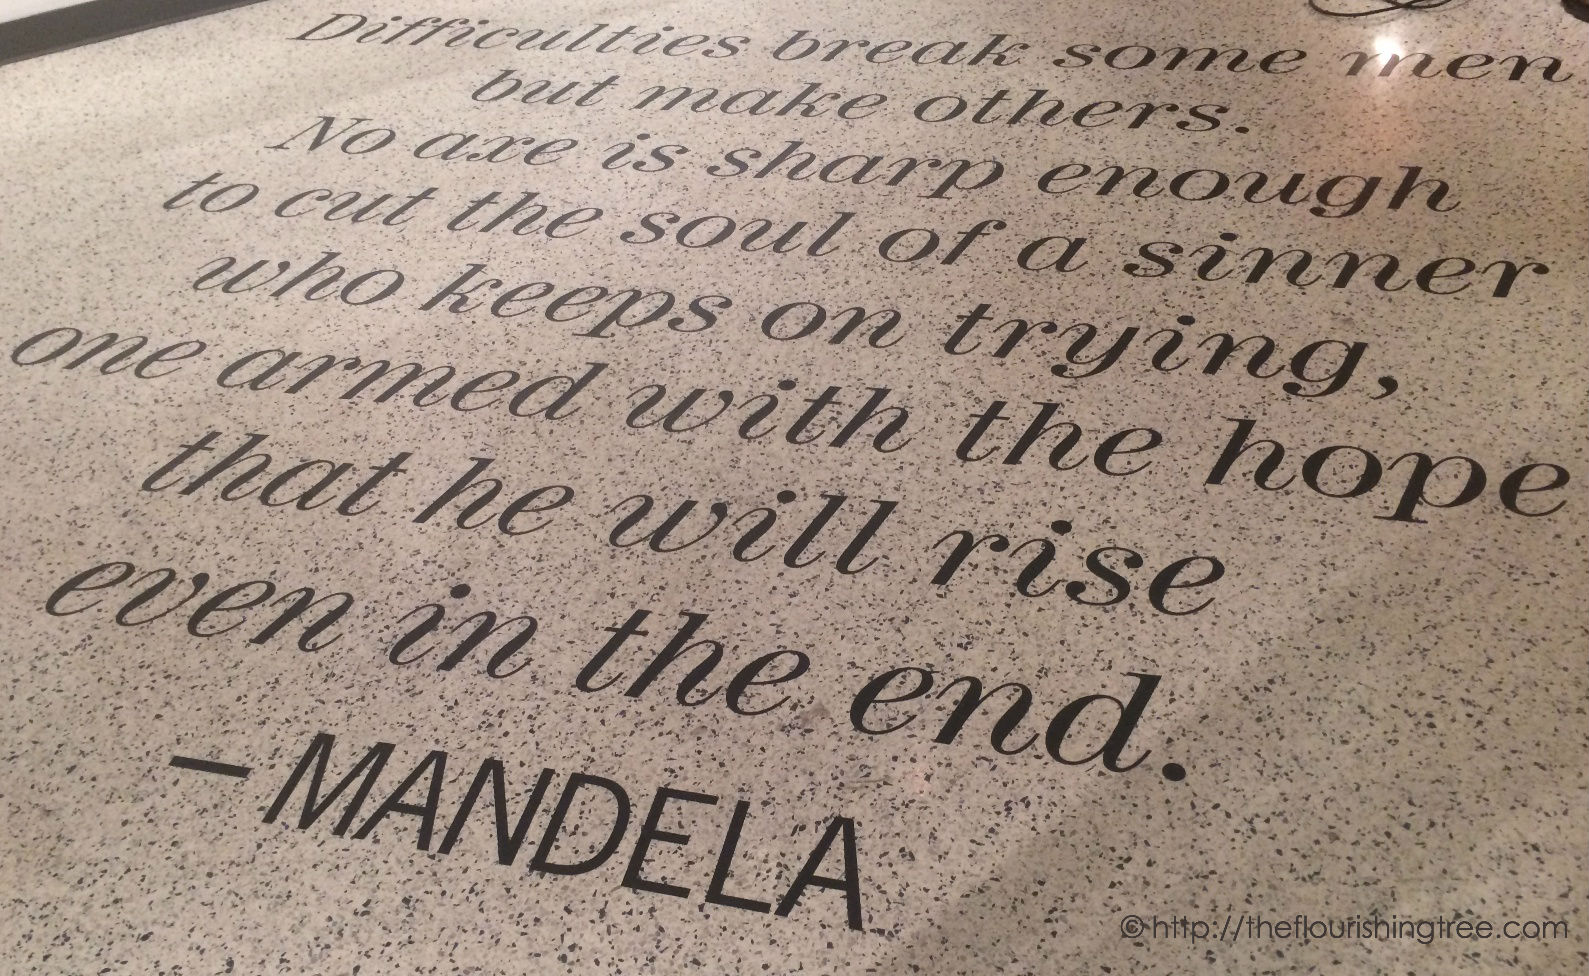 Difficulties break some men
but make others.
No axe is sharp enough
to cut the soul of a sinner
who keeps on trying,
one armed with the hope
that he will rise
even in the end.
– MANDELA
© http://theflourishingtree.com